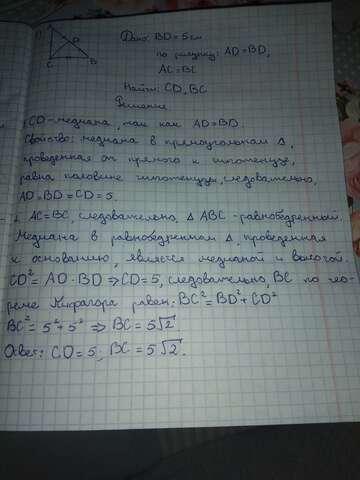 1) A
D
C B
Дано: BD = 5 см
по рисунку: AD = BD,
AC = BC
Найти: CD, BC
Решение
1. CD - медиана, так как AD = BD.
Свойство: медиана в прямоугольном Δ,
проведенная от прямого к гипотенузе,
равна половине гипотенузы, следовательно,
AD = BD = CD = 5
2. AC = BC, следовательно, Δ ABC - равнобедренный.
Медиана в равнобедренном Δ, проведенная
к основанию, является медианой и высотой.
CD² = AD · BD ⇒ CD = 5, следовательно, BC по тео-
реме Пифагора равен: BC² = BD² + CD²
BC² = 5² + 5² ⇒ BC = 5√2
Ответ: CD = 5, BC = 5√2.